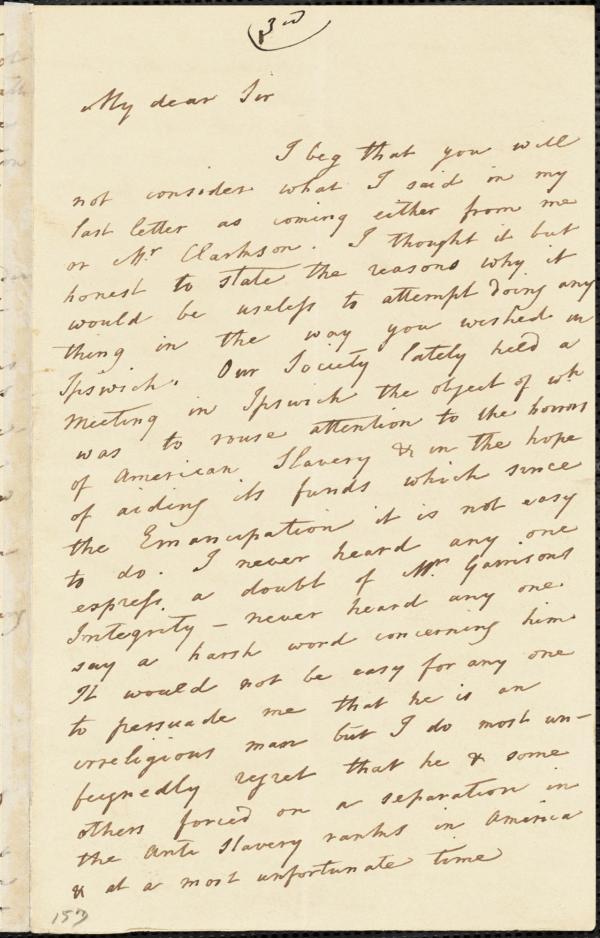 3rd
My dear Sir
I beg that you will
not consider what I said in my
last letter as coming either from me
or Mr Clarkson. I thought it but
honest to state the reasons why it
would be useless to attempt doing any
thing in the way you wished in
Ipswich. Our Society lately held a
meeting in Ipswich the object of wh
was to rouse attention to the horrors
of American Slavery & in the hope
of aiding its funds which since
the Emancipation it is not easy
to do. I never heard any one
express a doubt of Mr Garrisons
Integrity – never heard any one
say a harsh word concerning him
It would not be easy for any one
to persuade me that he is an
irreligious man but I do most un-
feignedly regret that he & some
others forced on a separation in
the Anti Slavery ranks in America
& at a most unfortunate time
157